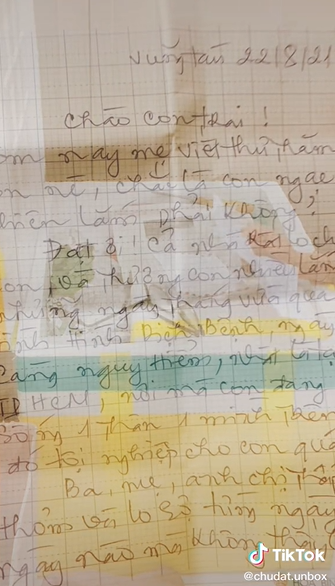 Vũng tàu 22/8/21
Chào con trai !
nay mẹ viết thư thăm
con né, chắc là con ngạc
nhiên lắm phải không ?
Đạt ơi ! cả nhà
con, và thương con nhiều lắm
những ngày tháng vừa qua
tình hình Dịch Bệnh nga
càng nguy hiểm, nhất là tại
HCM, nơi mà con đang
Sống 1 thân 1 mình
đó tội nghiệp cho con quá
Ba, mẹ, anh chị
và lo sợ từng ngày
ngày nào mà không
TikTok
@chudat.unbox